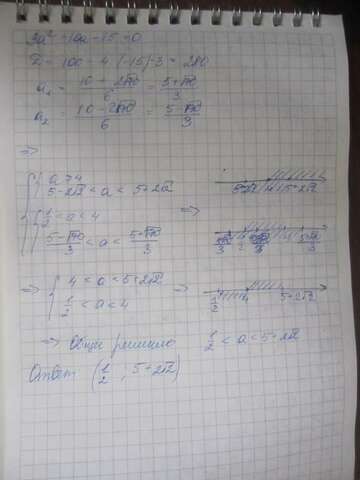 3a² - 10a - 15 = 0
D = 100 - 4·(-15)·3 = 280
a₁ = (10 + 2√70)/6 = (5+√70)/3
a₂ = (10 - 2√70)/6 = (5-√70)/3
⇒
a > 4
5-2√2 < a < 5+2√2
1/2 < a < 4 ⇒
(5-√70)/3 < a < (5+√70)/3
⇒ 4 < a < 5+2√2 ⇒
1/2 < a < 4
1/2 5+2√2
⇒ Общее решение 1/2 < a < 5+2√2
Ответ (1/2 ; 5+2√2)